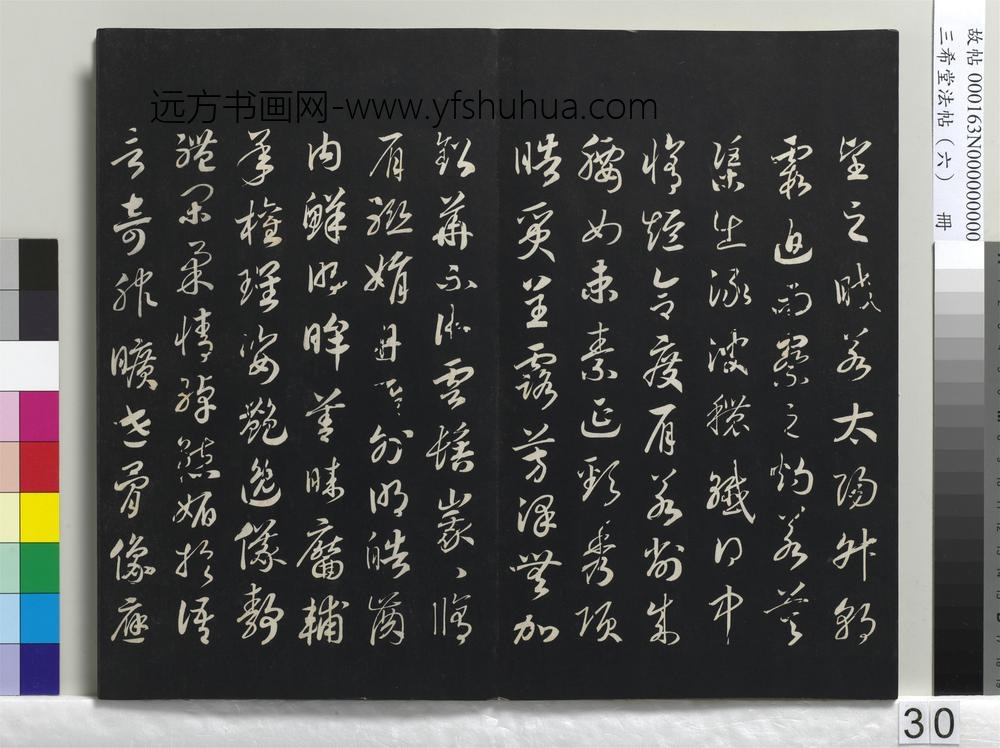 望之晈若太陽升朝
霞迫而察之灼若芙
渠出淥波穠纖得中
脩短合度肩若削成
腰如束素延頸秀項
皓質呈露芳澤無加
鉛華不御雲髻峩々脩
眉聯娟丹脣外朗皓齒
内鮮明眸善睞靨輔
承權瓌姿艷逸儀靜
體閑柔情綽態媚於語
言奇服曠世骨像應
远方书画网-www.yfshuhua.com
故帖 000163N000000000
三希堂法帖（六） 册
30